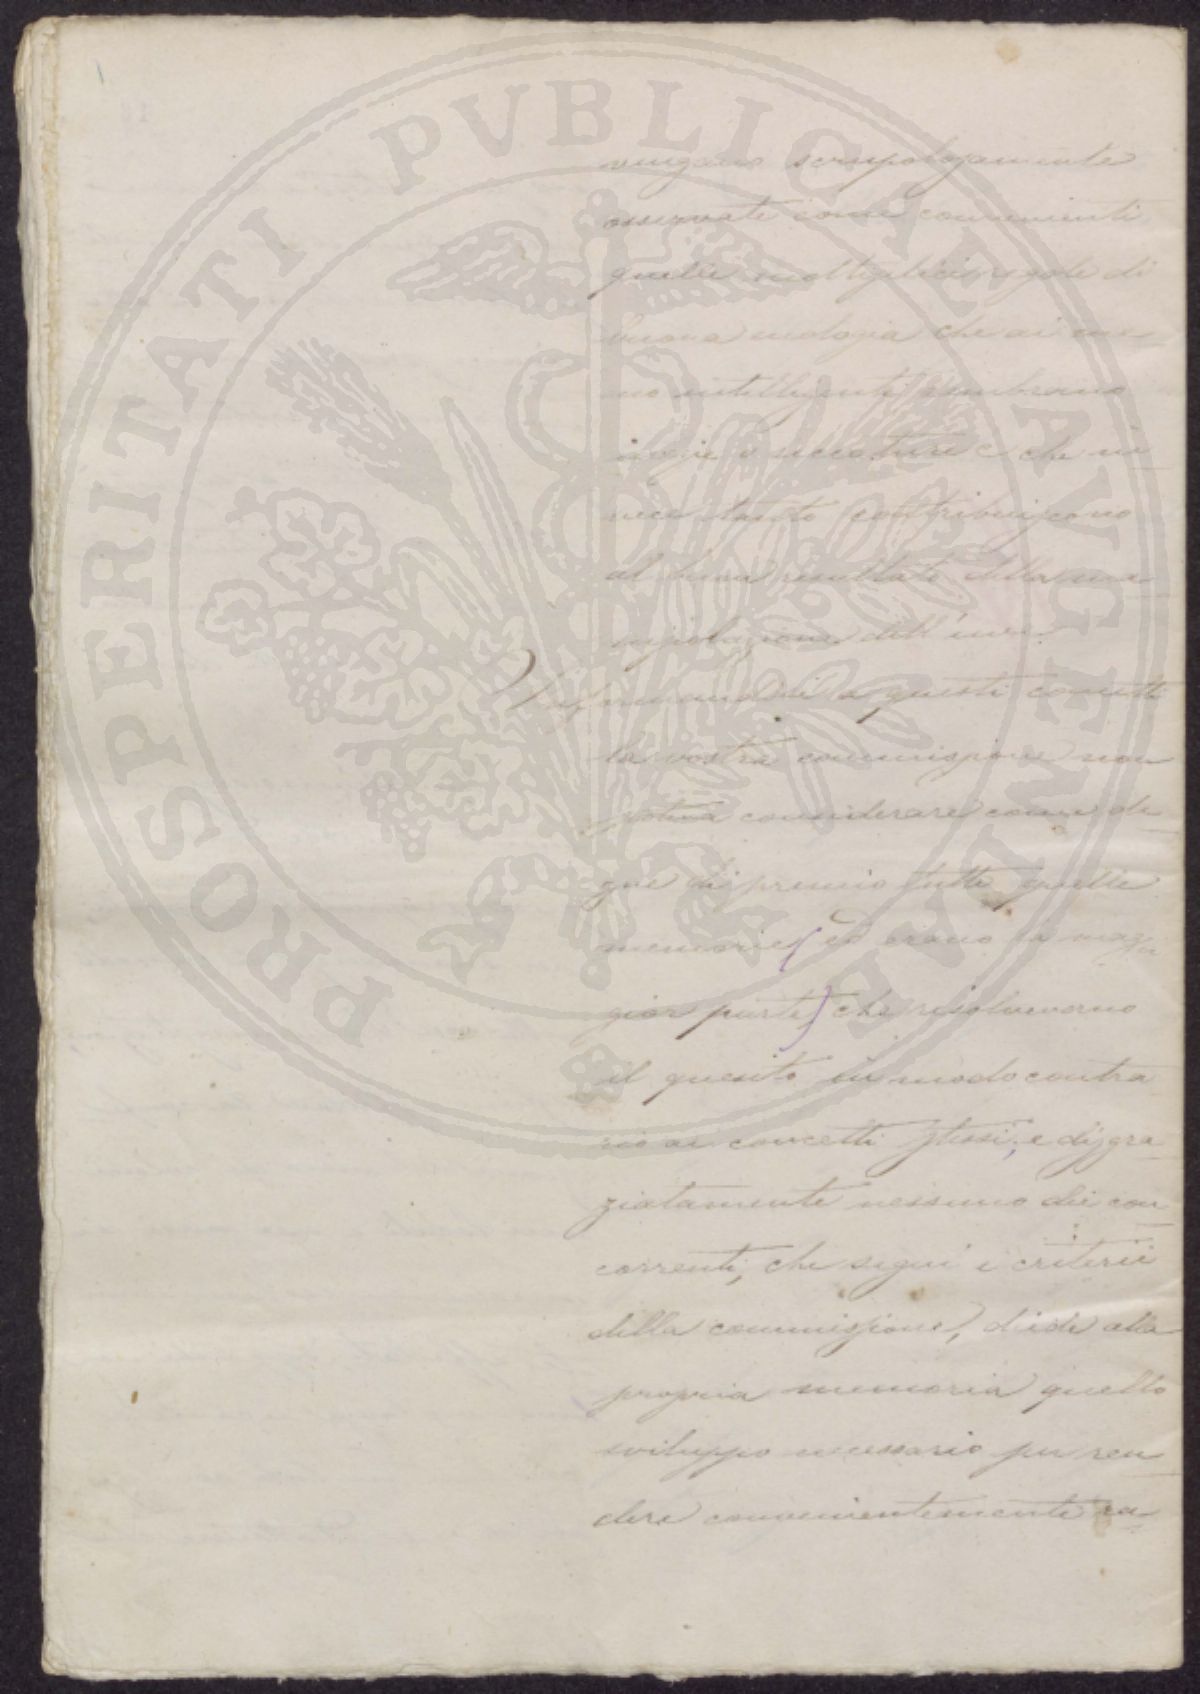 PROSPERITATI PUBLICAE AVGENDAE
vengano scrupolosamente
osservate come convenienti
quelle molteplici regole di
buona enologia che ai me-
no intelligenti sembrano
inezie o seccature e che in-
vece tanto contribuiscono
al buon resultato della ma-
nipolazione dell'uve.
Informandosi a questi concetti
la vostra commissione non
poteva considerare come de-
gne di premio tutte quelle
memorie (ed erano la mag-
gior parte) che risolvevano
il quesito in modo contra
rio ai concetti stessi, e disgra-
ziatamente nessuno dei con
correnti, che seguì i criterii
della commissione, diede alla
propria memoria quello
sviluppo necessario per ren
dere convenientemente ra-